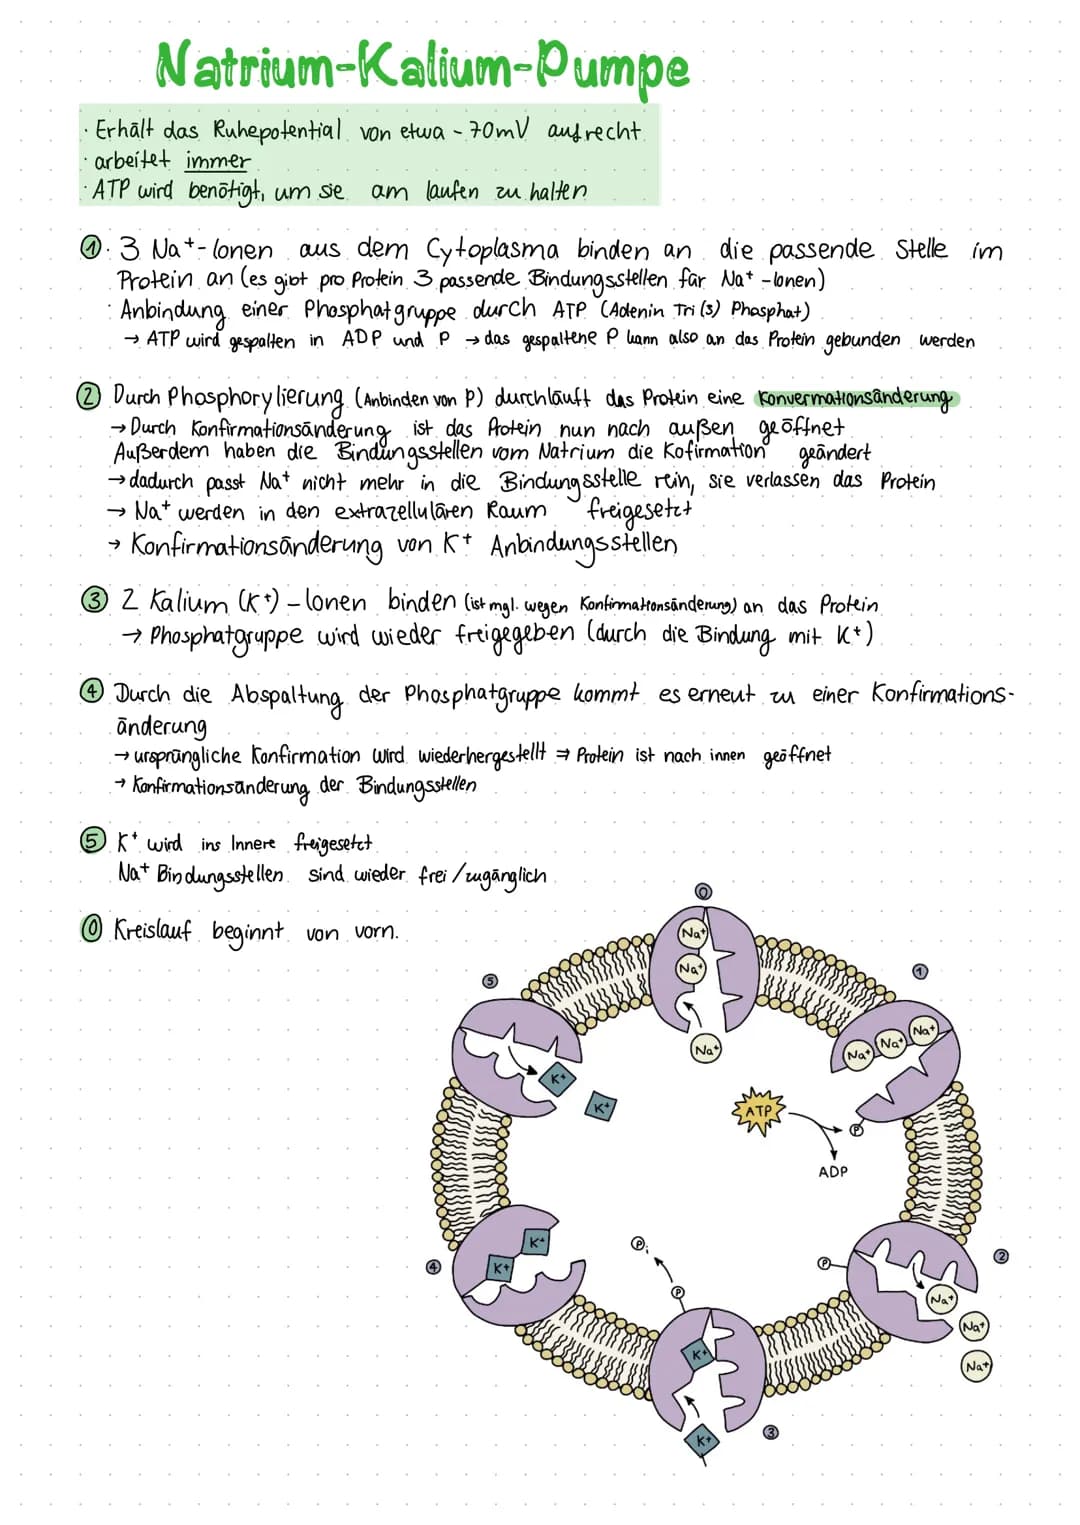 Natrium-Kalium-Pumpe
· Erhält das Ruhepotential von etwa -70mV aufrecht
· arbeitet immer
· ATP wird benötigt, um sie am laufen zu halten
① · 3 Na+-Ionen aus dem Cytoplasma binden an die passende Stelle im
Protein an (es gibt pro Protein 3 passende Bindungsstellen für Na+ -Ionen)
· Anbindung einer Phosphatgruppe durch ATP (Adenin Tri (3) Phosphat)
→ ATP wird gespalten in ADP und P → das gespaltene P kann also an das Protein gebunden werden
② Durch Phosphorylierung (Anbinden von P) durchläuft das Protein eine Konvermationsänderung
→ Durch Konfirmationsänderung ist das Protein nun nach außen geöffnet
Außerdem haben die Bindungsstellen vom Natrium die Kofirmation geändert
→ dadurch passt Na+ nicht mehr in die Bindungsstelle rein, sie verlassen das Protein
→ Na+ werden in den extrazellulären Raum freigesetzt
→ Konfirmationsänderung von K+ Anbindungsstellen
③ 2 Kalium (K+) - Ionen binden (ist mgl. wegen Konfirmationsänderung) an das Protein
→ Phosphatgruppe wird wieder freigegeben (durch die Bindung mit K+)
④ Durch die Abspaltung der Phosphatgruppe kommt es erneut zu einer Konfirmations-
änderung
→ ursprüngliche Konfirmation wird wiederhergestellt ⇒ Protein ist nach innen geöffnet
→ Konfirmationsänderung der Bindungsstellen
⑤ K+ wird ins Innere freigesetzt
Na+ Bindungsstellen sind wieder frei/zugänglich
⓪ Kreislauf beginnt von vorn.
⓪
Na+
Na+
Na+
①
Na+
Na+
Na+
⑤
K+
K+
ATP
P
ADP
②
P
Na+
Na+
Na+
④
K+
K+
Pi
P
K+
K+
③